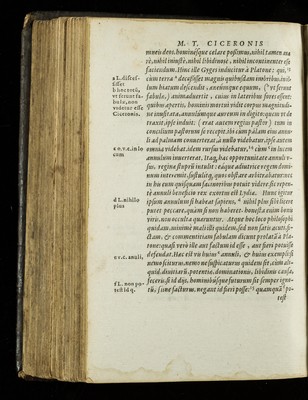 M. T. CICERONIS
mneis deos, hominesque celare possimus, nihil tamen aua
rè, nihil iniustè, nihil libidinosè, nihil incontinenter esse
faciendum. Hinc ille Gyges inducitur à Platone: qui,
cum terra decessisset magnis quibusdam imbribus, in il-
lum hiatum descendit, aeneumque equum, (ut ferunt
fabulae) animaduertit, cuius in lateribus fores essent:
quibus apertis, hominis mortui vidit corpus magnitudi-
ne inusitata, anulumque aureum in digito: quem ut de
traxit, ipse induit: (erat autem regius pastor) tum in
concilium pastorum se recepit. ibi cum palam eius anu-
li ad palmam conuerterat, à nullo videbatur, ipse autem
omnia videbat. idem rursus videbatur, cum in locum
annulum inuerterat. Itaque hac opportunitate annuli v-
sus, reginae stuprum intulit: eaque adiutrice regem domi-
num interemit, sustulit, quos obstare arbitrabatur: nec
in his eum quisquam facinoribus potuit videre. sic repen-
tè annuli beneficio rex exortus est Lydiae. Hunc igitur
ipsum annulum si habeat sapiens, nihil plus sibi licere
putet peccare, quàm si non haberet. honesta enim bonu
viris, non occulta quaeruntur. Atque hoc loco philosophi
quidam, minimè mali illi quidem, sed non satis acuti, fi-
ctam, & commentitiam fabulam dicunt prolatam à Pla-
tone: quasi verò ille aut factum id esse, aut fieri potuisse
defendat. Haec est vis huius annuli, & huius exempli: si
nemo sciturus, nemo ne suspicaturus quidem sit, cùm ali-
quid, diuitiarum, potentiae, dominationis, libidinis causa,
feceris, si id diis, hominibusque futurum sit semper igno-
tum, sisne facturus. negant id fieri posse: quamquam po-
test
a L. discessisset
b hoc totum,
ut ferunt fabulae, non
videtur esse
Ciceronis.
c o. v. c. in lo
cum
d L. nihilo
plus
e v. c. anuli,
f L. non potest id q.